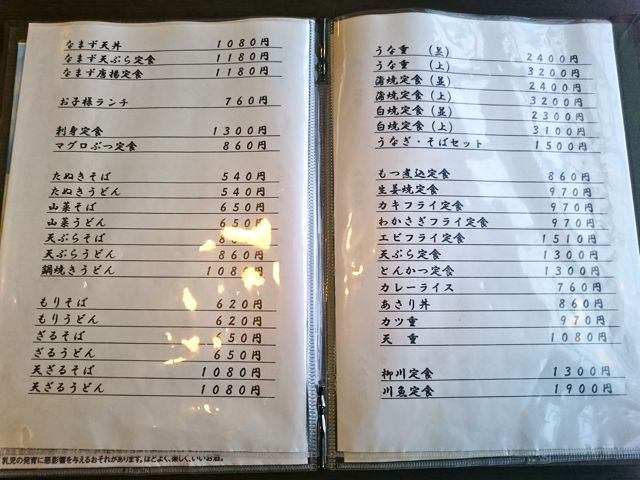 なまず天丼 1080円
なまず天ぷら定食 1180円
なまず唐揚定食 1180円
お子様ランチ 760円
刺身定食 1300円
マグロぶつ定食 860円
たぬきそば 540円
たぬきうどん 540円
山菜そば 650円
山菜うどん 650円
天ぷらそば 860円
天ぷらうどん 860円
鍋焼きうどん 1080円
もりそば 620円
もりうどん 620円
ざるそば 650円
ざるうどん 650円
天ざるそば 1080円
天ざるうどん 1080円
乳児の発育に悪影響を与えるおそれがあります。ほどよく、楽しく、いいお酒。
うな重 (並) 2400円
うな重 (上) 3200円
蒲焼定食(並) 2400円
蒲焼定食(上) 3200円
白焼定食(並) 2300円
白焼定食(上) 3100円
うなぎ・そばセット 1500円
もつ煮込定食 860円
生姜焼定食 970円
カキフライ定食 970円
わかさぎフライ定食 970円
エビフライ定食 1510円
天ぷら定食 1300円
とんかつ定食 1300円
カレーライス 760円
あさり丼 860円
カツ重 970円
天 重 1080円
柳川定食 1300円
川魚定食 1900円